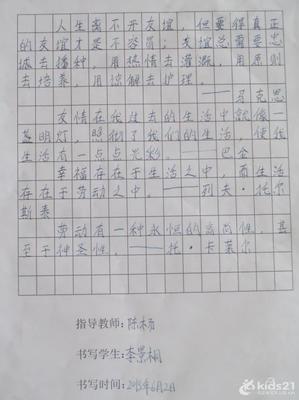 人生离不开友谊，但要得真正
的友谊才是不容易；友谊总需要忠
诚去播种，用热情去灌溉，用原则
去培养，用谅解去护理。
——马克思
友情在我过去的生活中就像一
盏明灯，照彻了我们的生活，使我
生活有一点点光彩。——巴金
幸福存在于生活之中，而生活
存在于劳动之中。——列夫·托尔
斯泰
劳动有一种永恒的高尚性，甚
至于神圣性。——托·卡莱尔
指导教师:陈杨
书写学生:李景桐
书写时间:2018年6月2日
kids21